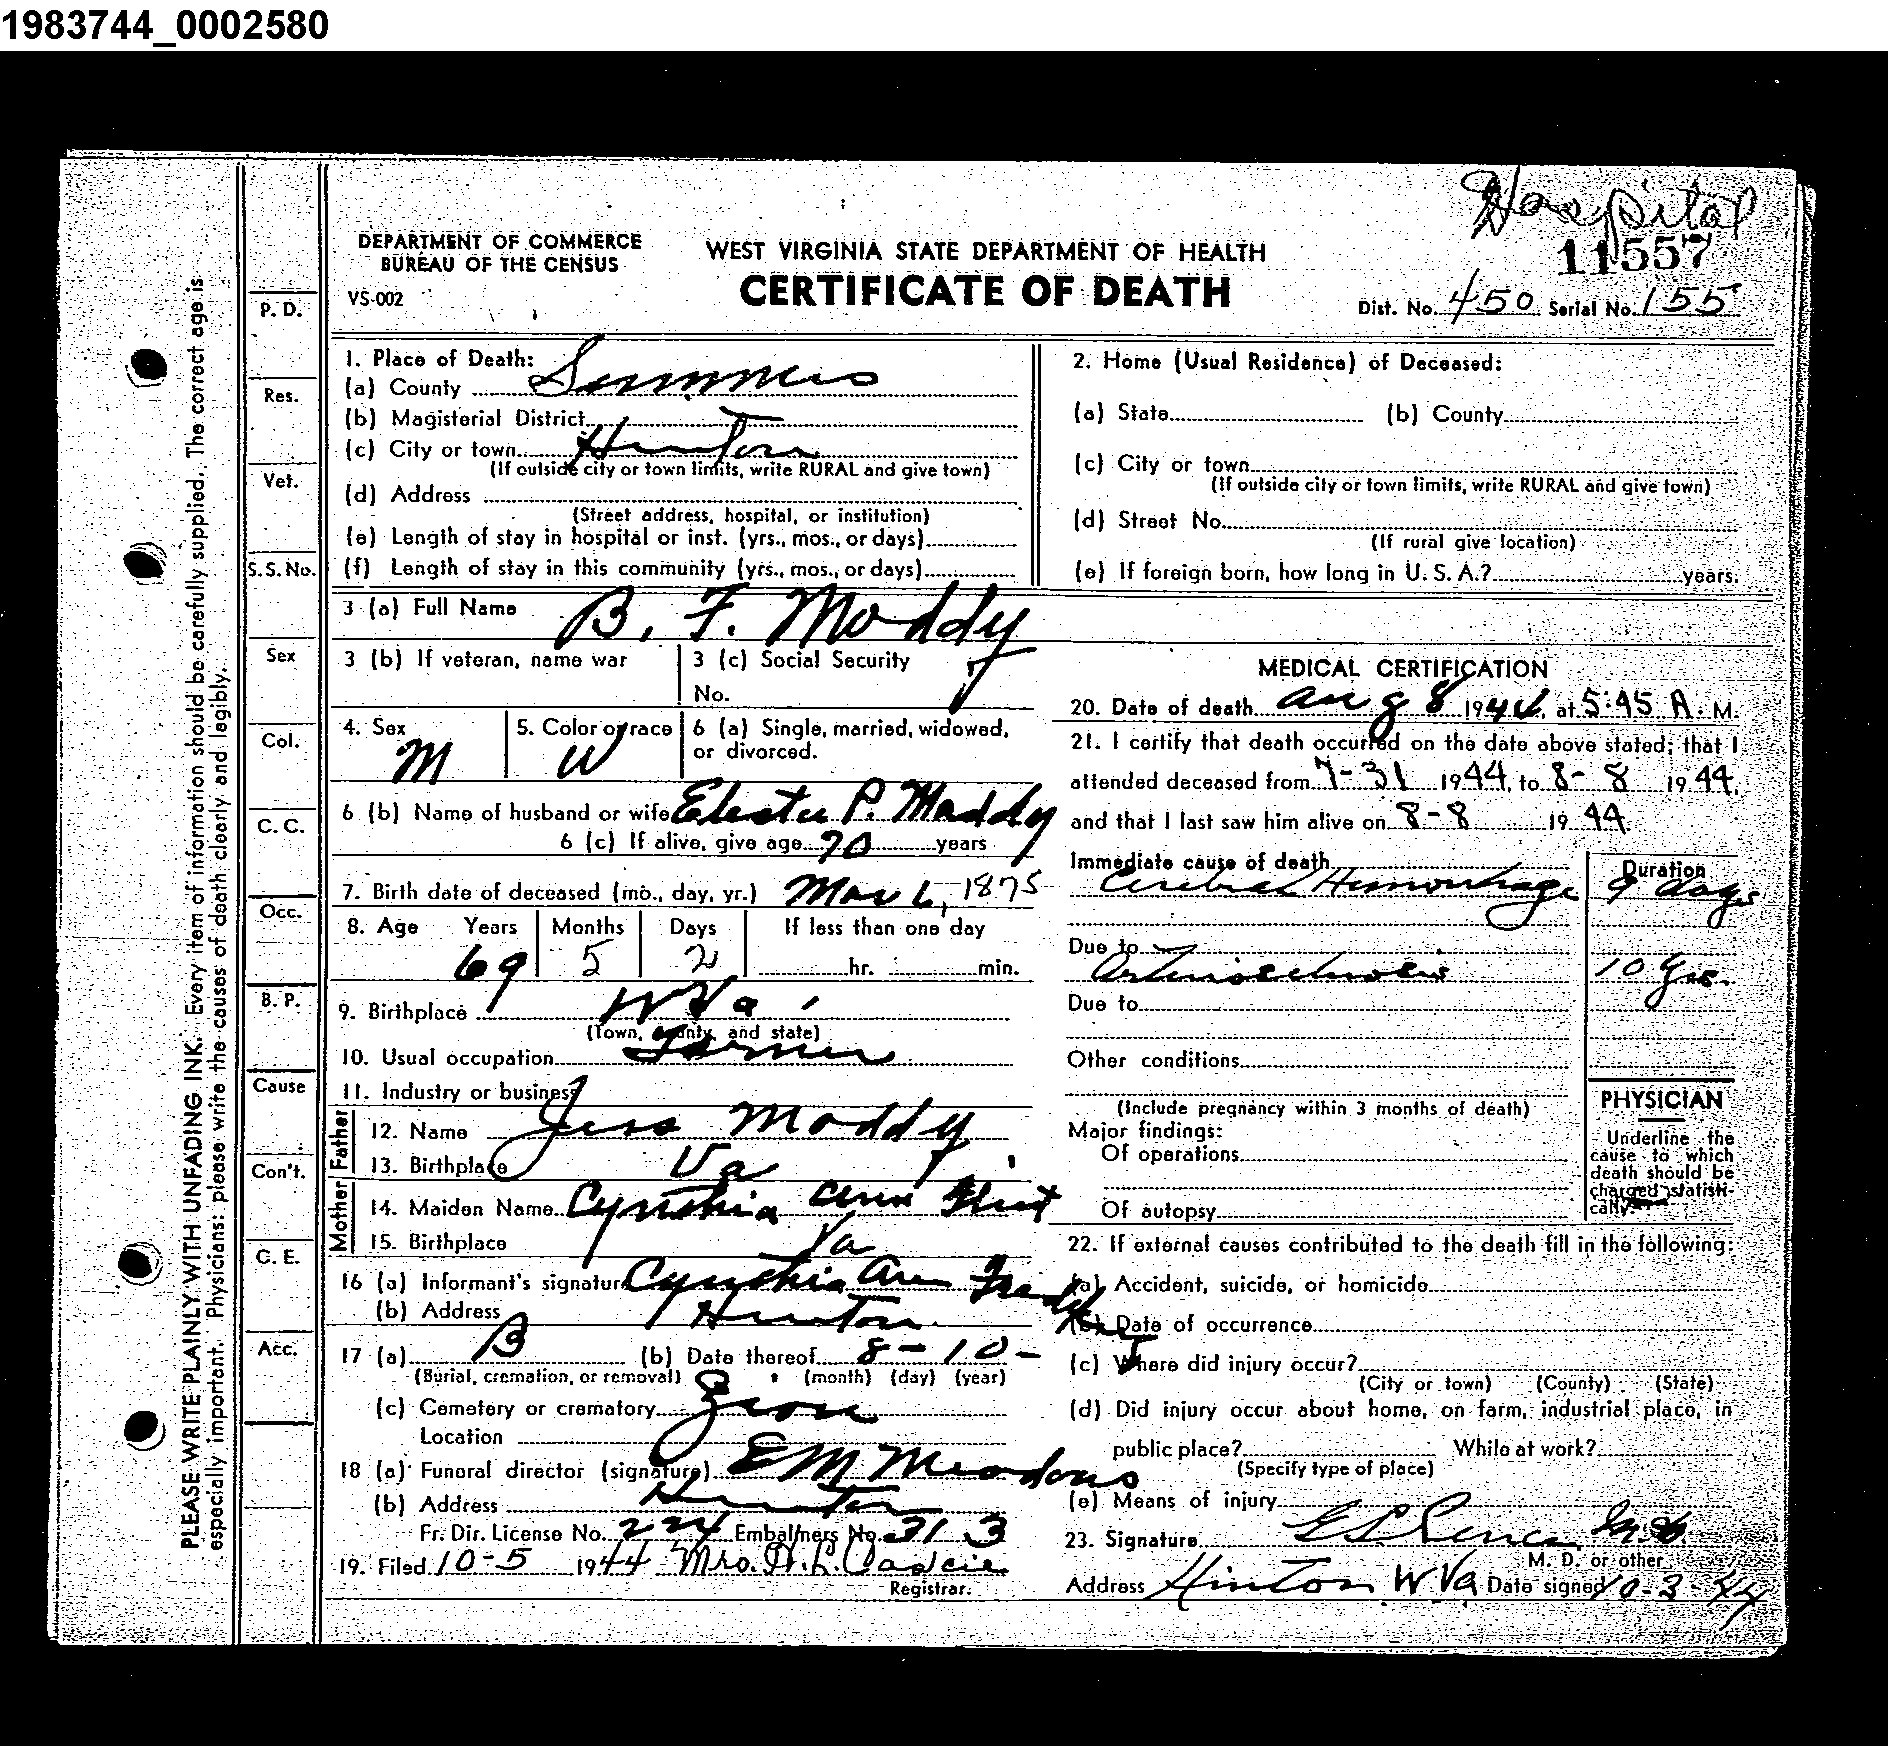 1983744_0002580
Hospital
11557
DEPARTMENT OF COMMERCE
BUREAU OF THE CENSUS
VS-002
WEST VIRGINIA STATE DEPARTMENT OF HEALTH
CERTIFICATE OF DEATH
Dist. No. 450 Serial No. 155
PLEASE WRITE PLAINLY WITH UNFADING INK. Every item of information should be carefully supplied. The correct age is
especially important. Physicians: please write the causes of death clearly and legibly.
P. D.
Res.
Vet.
S. S. No.
Sex
Col.
C. C.
Occ.
B. P.
Cause
Con't.
C. E.
Acc.
1. Place of Death:
(a) County Summers
(b) Magisterial District
(c) City or town Hinton
(If outside city or town limits, write RURAL and give town)
(d) Address
(Street address, hospital, or institution)
(e) Length of stay in hospital or inst. (yrs., mos., or days)
(f) Length of stay in this community (yrs., mos., or days)
2. Home (Usual Residence) of Deceased:
(a) State (b) County
(c) City or town
(If outside city or town limits, write RURAL and give town)
(d) Street No.
(If rural give location)
(e) If foreign born, how long in U. S. A.? years.
3 (a) Full Name B. F. Maddy
3 (b) If veteran, name war
3 (c) Social Security
No.
4. Sex M
5. Color or race W
6 (a) Single, married, widowed,
or divorced.
6 (b) Name of husband or wife P. Maddy
6 (c) If alive, give age 70 years
7. Birth date of deceased (mo., day, yr.) Mar 6, 1875
8. Age Years Months Days If less than one day
69 5 2 hr. min.
9. Birthplace W Va
(Town, county, and state)
10. Usual occupation Farmer
11. Industry or business
Father
12. Name Jess Maddy
13. Birthplace Va
Mother
14. Maiden Name Cynthia Ann
15. Birthplace Va
16 (a) Informant's signature Cynthia Ann
(b) Address Hinton
17 (a) B (b) Date thereof 8-10-
(Burial, cremation, or removal) (month) (day) (year)
(c) Cemetery or crematory Zion
Location
18 (a) Funeral director (signature) E M Meadows
(b) Address Hinton
Fr. Dir. License No. 224 Embalmers No. 313
19. Filed 10-5 1944 Mrs. H. L.
Registrar.
MEDICAL CERTIFICATION
20. Date of death Aug 8 1944, at 5:45 A. M.
21. I certify that death occurred on the date above stated; that I
attended deceased from 7-31 1944, to 8-8 1944,
and that I last saw him alive on 8-8 1944
Immediate cause of death Duration
Cerebral Hemorrhage 9 days
Due to
Arteriosclerosis 10 yrs.
Due to
Other conditions
(Include pregnancy within 3 months of death)
Major findings:
Of operations
Of autopsy
PHYSICIAN
Underline the
cause to which
death should be
charged statisti-
cally
22. If external causes contributed to the death fill in the following:
(a) Accident, suicide, or homicide
(b) Date of occurrence
(c) Where did injury occur?
(City or town) (County) (State)
(d) Did injury occur about home, on farm, industrial place, in
public place? While at work?
(Specify type of place)
(e) Means of injury
23. Signature M.D.
M. D. or other
Address Hinton W Va Date signed 10-3-44